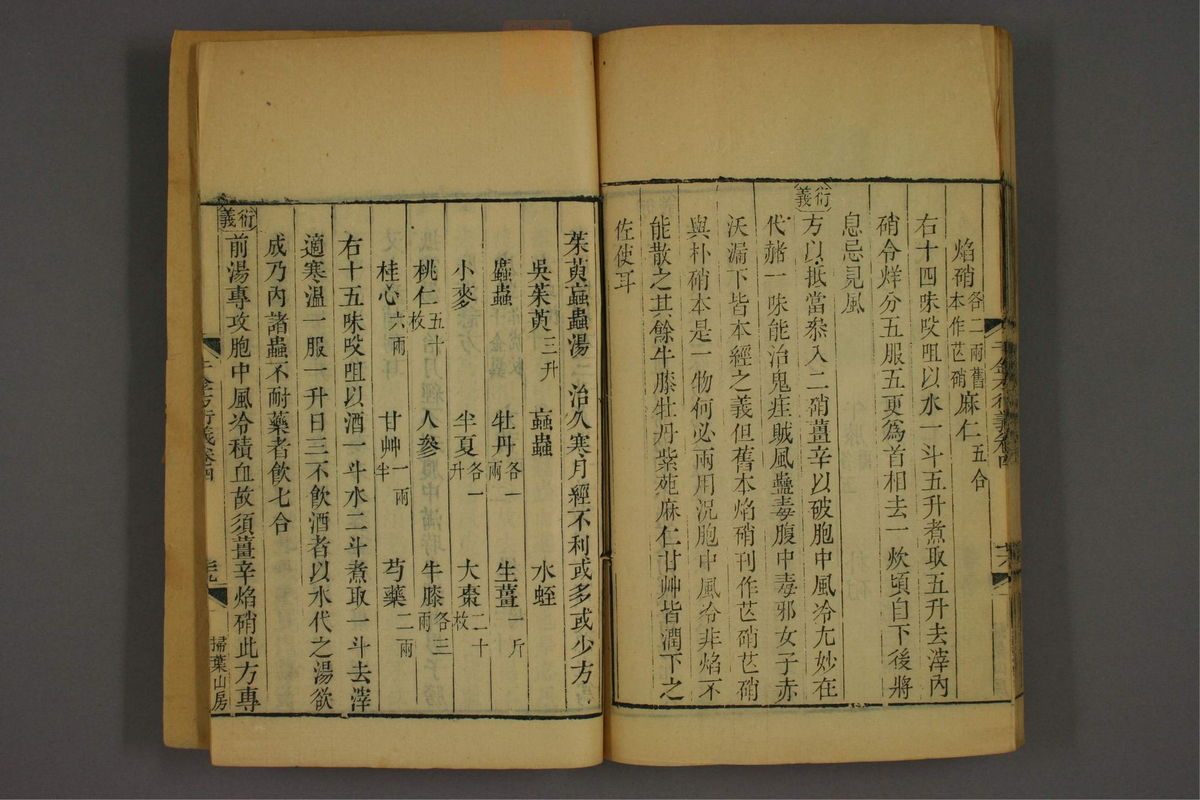 焰硝各二兩舊本作芒硝 麻仁五合
右十四味㕮咀以水一斗五升煮取五升去滓內
硝令烊分五服五更爲首相去一炊頃自下後將
息忌見風
衍義 方以抵當參入二硝薑辛以破胞中風冷尤妙在
代赭一味能治鬼疰賊風蠱毒腹中毒邪女子赤
沃漏下皆本經之義但舊本焰硝刊作芒硝芒硝
與朴硝本是一物何必兩用況胞中風冷非焰不
能散之其餘牛膝牡丹紫菀麻仁甘艸皆潤下之
佐使耳
千金方衍義卷四
茱萸䖟蟲湯二 治久寒月經不利或多或少方
吳茱萸三升 䖟蟲 水蛭
䗪蟲 牡丹各一兩 生薑一斤
小麥 半夏各一升 大棗二十枚
桃仁五十枚 人參 牛膝各三兩
桂心六兩 甘艸一兩半 芍藥二兩
右十五味㕮咀以酒一斗水二斗煮取一斗去滓
適寒温一服一升日三不飲酒者以水代之湯欲
成乃內諸蟲不耐藥者飲七合
衍義 前湯專攻胞中風冷積血故須薑辛焰硝此方專
千金方衍義卷四
掃葉山房